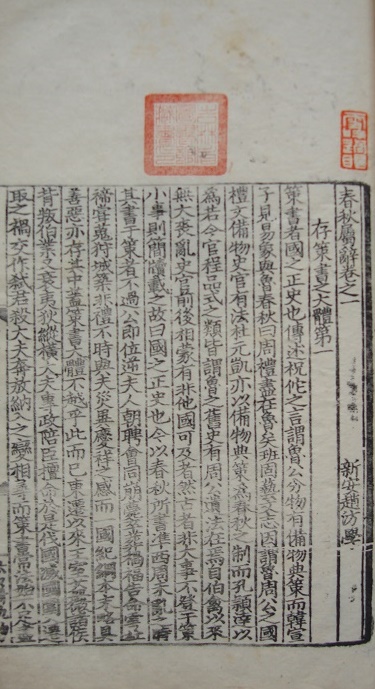 春秋屬辭卷之一
新安趙汸學
存策書之大體第一
策書者國之正史也傳述祝佗之言謂魯公分物有備物典策而韓宣
子見易象與魯春秋曰周禮盡在魯矣班固藝文志因謂魯周公之國
禮文備物史官有法杜元凱亦以備物典策為春秋之制而孔穎達以
為若今官程品式之類皆謂魯之舊史有周公遺法在焉自伯禽以來
無大喪亂史官前後相蒙有非他國可及者然古者非大事不登于策
小事則簡牘載之故曰國之正史也今以春秋所書准西周未亂之時
其書于策者不過公即位逆夫人朝聘會同崩薨卒葬禍福告命雩社
禘嘗蒐狩城築非禮不時與夫災異慶祥之感而國紀綱本末略具
善惡亦存其中蓋策書大體不越乎此而已東遷以來王室
昔叛伯業之衰夷狄縱橫大夫專政陪臣擅命於是伐國滅國圍入遷
取之禍交作弒君殺大夫奔放納入之變相尋而策書